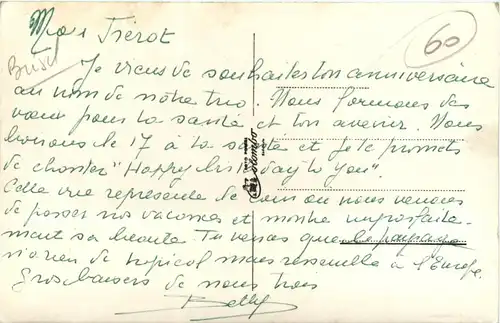 Mon Pierot
60
Je viens de souhaiter ton anniversaire
au nom de notre trio. Nous formons des
vœux pour ta santé et ton avenir. Nous
boirons le 17 à ta santé et je te promets
de chanter "Happy birthday to you".
Cette vue représente de où nous venons
de passer nos vacances et montre imparfaite-
ment sa beauté. Tu verras que le paysage
n'a rien de tropical mais ressemble à l'Europe.
Gros baisers de nous trois